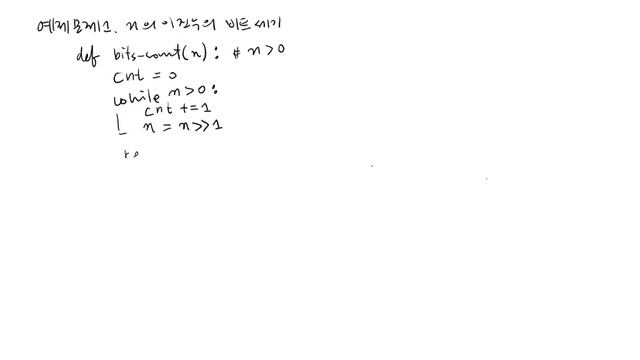 예제문제1. n의 이진수의 비트세기
def bits-count(n): # n>0
cnt = 0
while n>0:
cnt += 1
n = n>>1
re